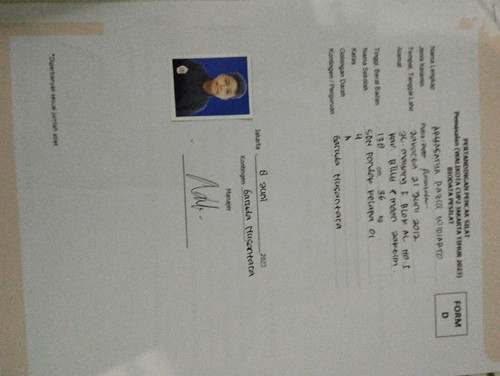 FORM
D
PERTANDINGAN PENCAK SILAT
Pemasalan (WALIKOTA CUP2 JAKARTA TIMUR 2023)
BIODATA PESILAT
Nama Lengkap
Jenis Kelamin : Putra / Putri
Tempat, Tanggal Lahir : 21 Juni 2012
Alamat : Blok AC No. 1
Tinggi, Berat Badan : 138 cm 36 kg
Nama Sekolah : SDN Pondok Kelapa 01
Kelas : 4
Golongan Darah : A
Kontingen / Perguruan : Garuda Nusantara
Jakarta 8 Juni 2023
Kontingen Garuda Nusantara
Manager
*Diperbanyak sesuai jumlah atlet